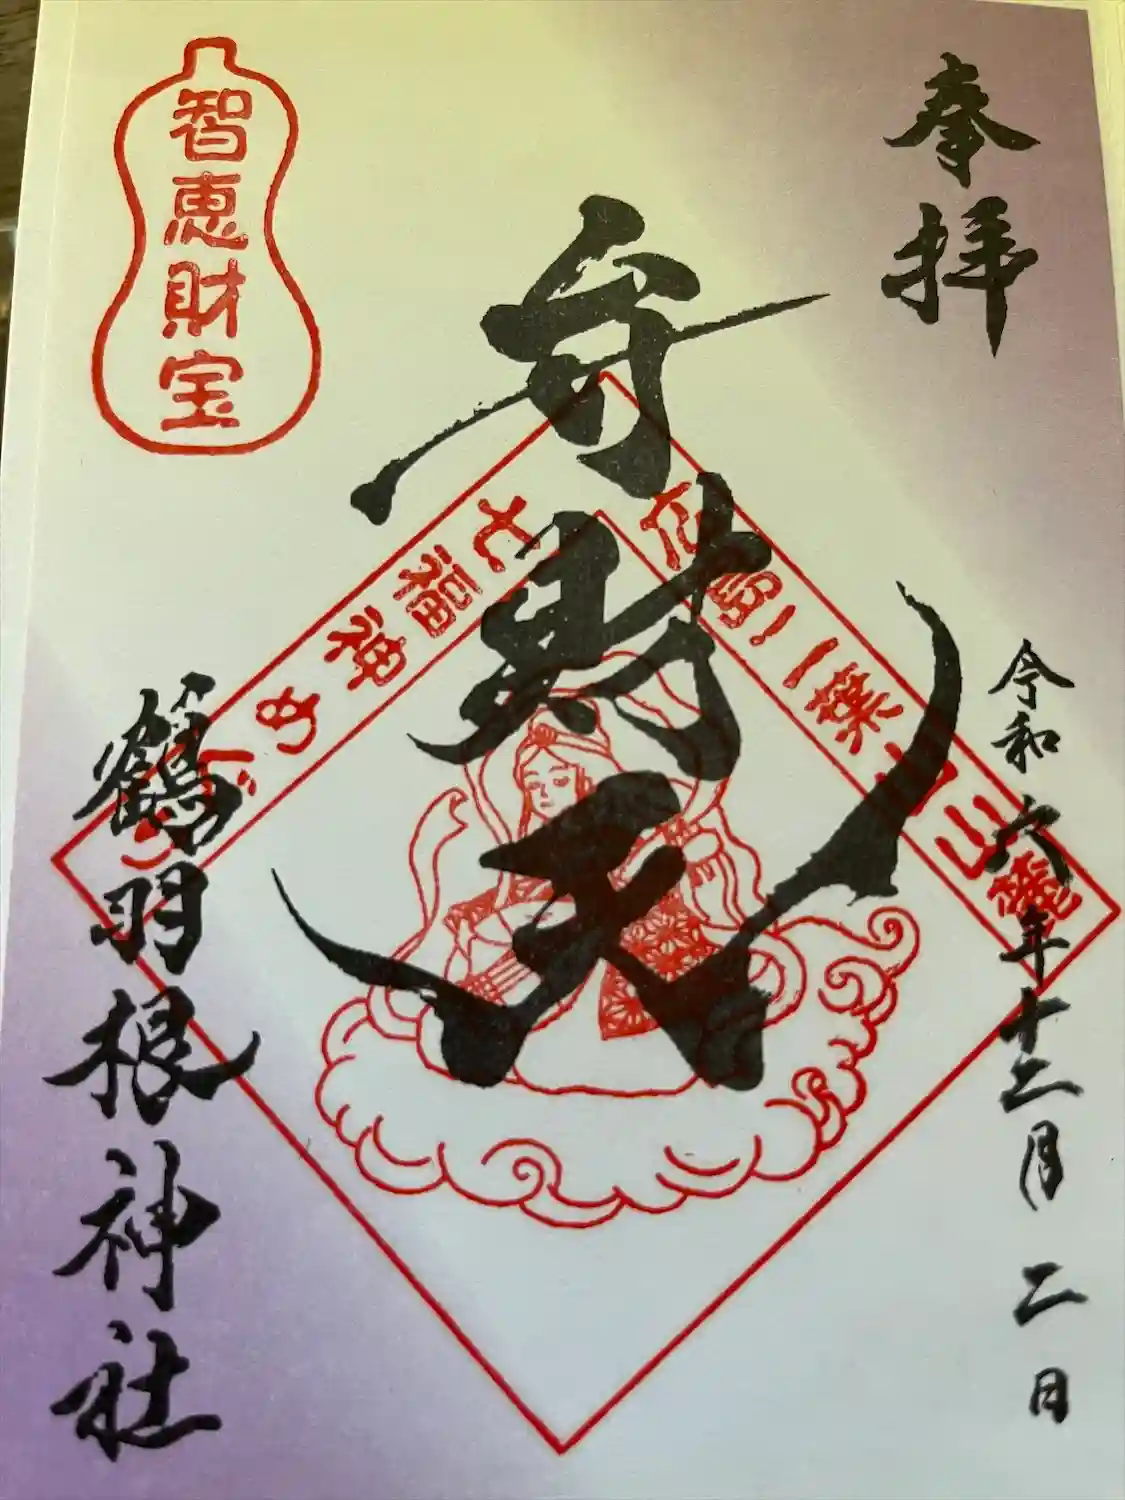 奉拝
令和六年十二月二日
弁財天
広島二葉
七福神めぐり
智恵財宝
鶴羽根神社